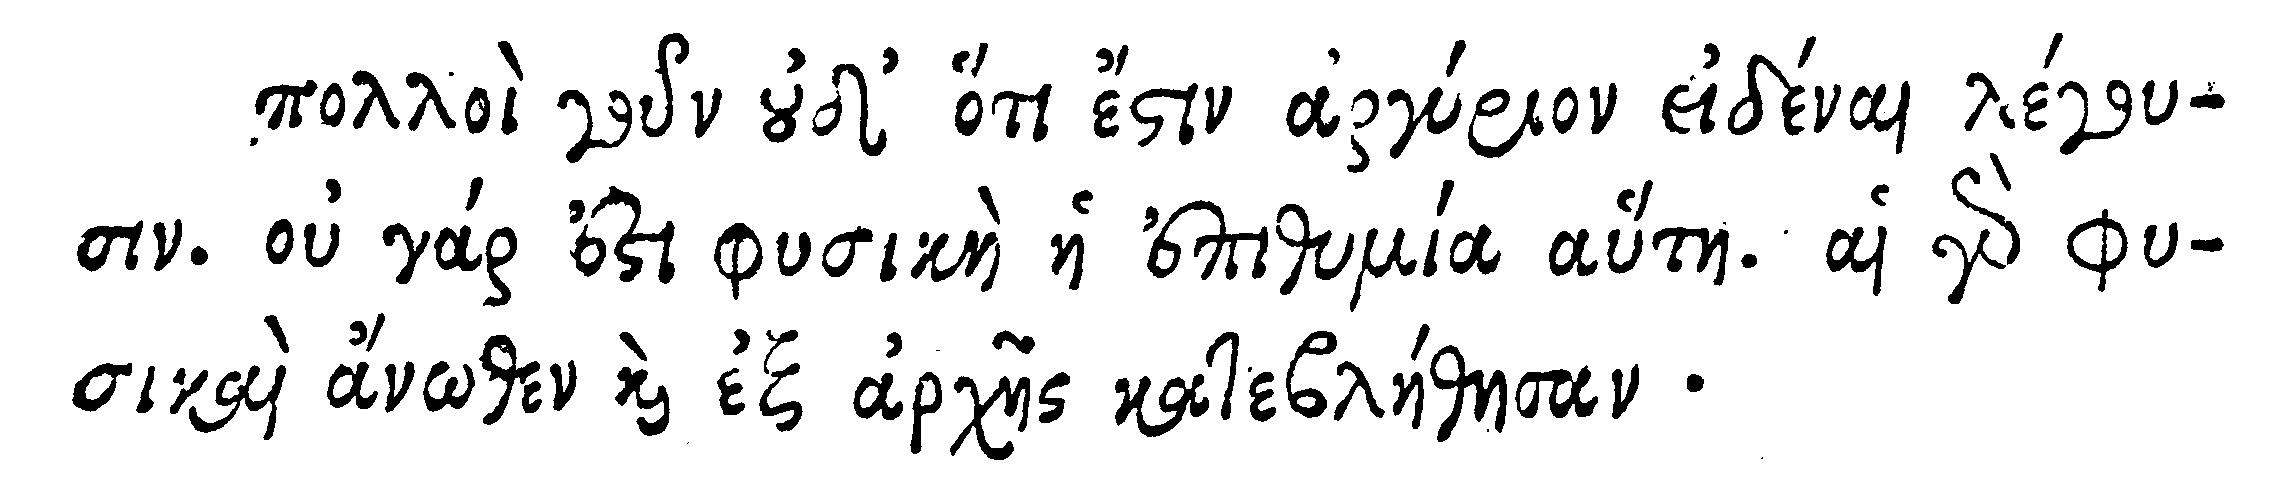 πολλοὶ γοῦν οὐδ’ ὅτι ἔστιν ἀργύριον εἰδέναι λέγου-
σιν. οὐ γάρ ἐστι φυσικὴ ἡ ἐπιθυμία αὕτη. αἱ γὰρ φυ-
σικαὶ ἄνωθεν καὶ ἐξ ἀρχῆς κατεβλήθησαν.